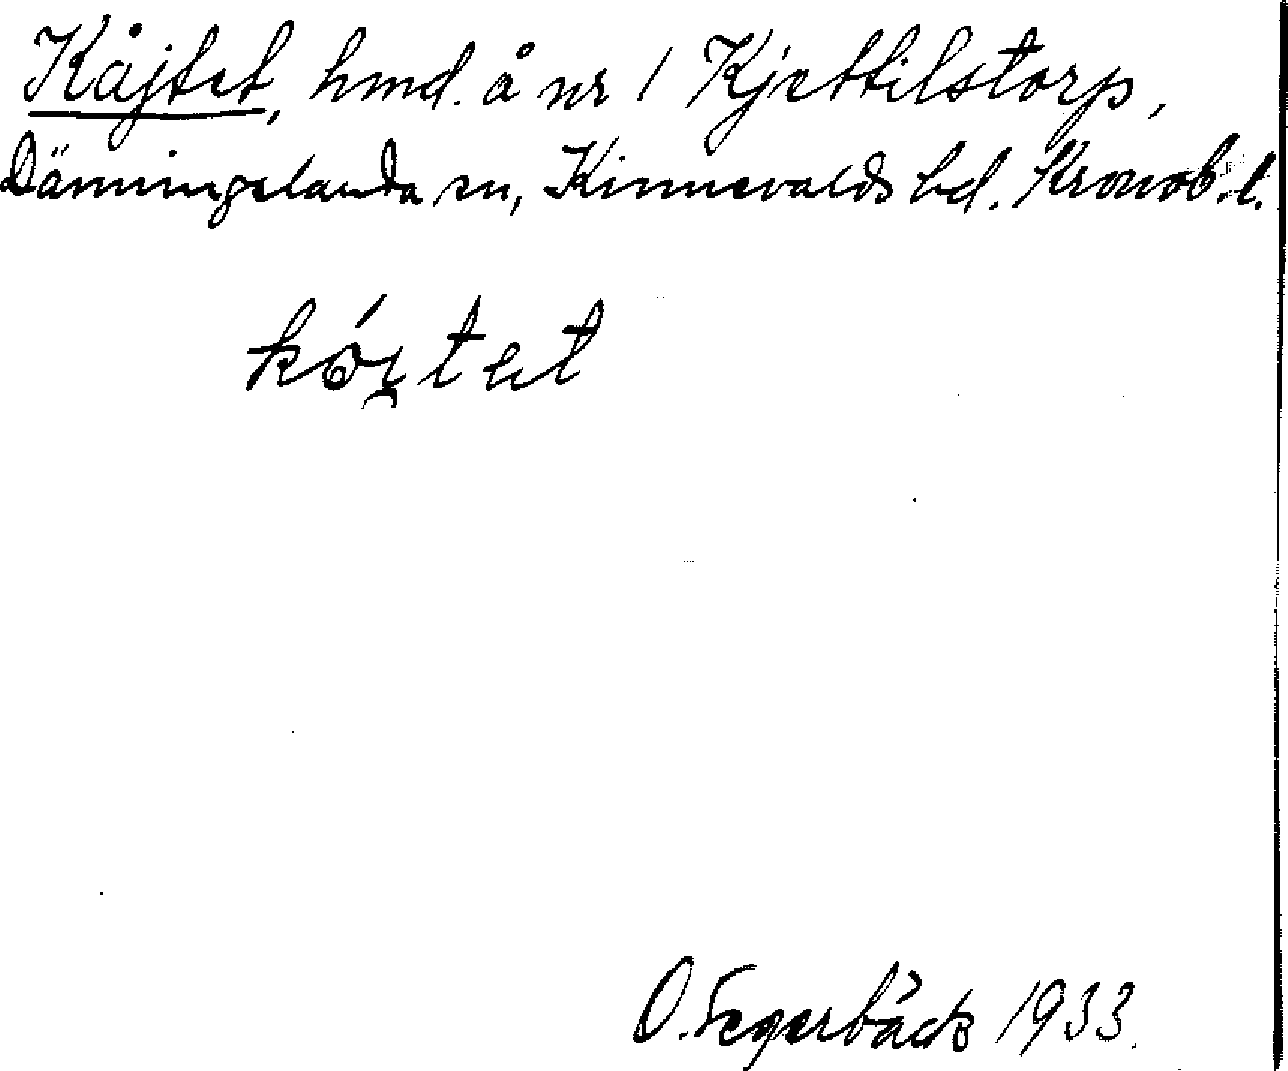 Kåjtet, hmd. å nr 1 Kjettilstorp,
Dänningelanda sn, Kinnevalds hd. Kronob. l.
kói̯tet
O. Segerbäck 1933.